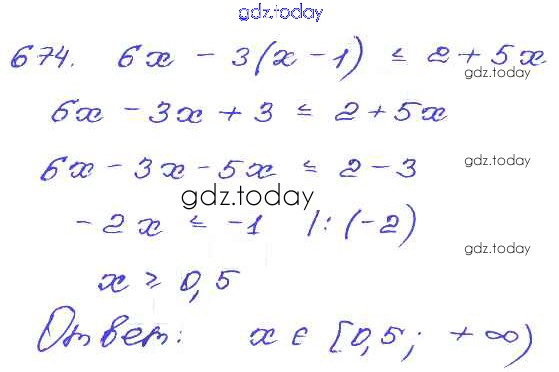 gdz.today
674. 6x - 3(x - 1) ≤ 2 + 5x
gdz.today
6x - 3x + 3 ≤ 2 + 5x
6x - 3x - 5x ≤ 2 - 3
gdz.today
gdz.today
-2x ≤ -1 |: (-2)
gdz.today
x ≥ 0,5
Ответ: x ∈ [0,5; +∞)
gdz.today